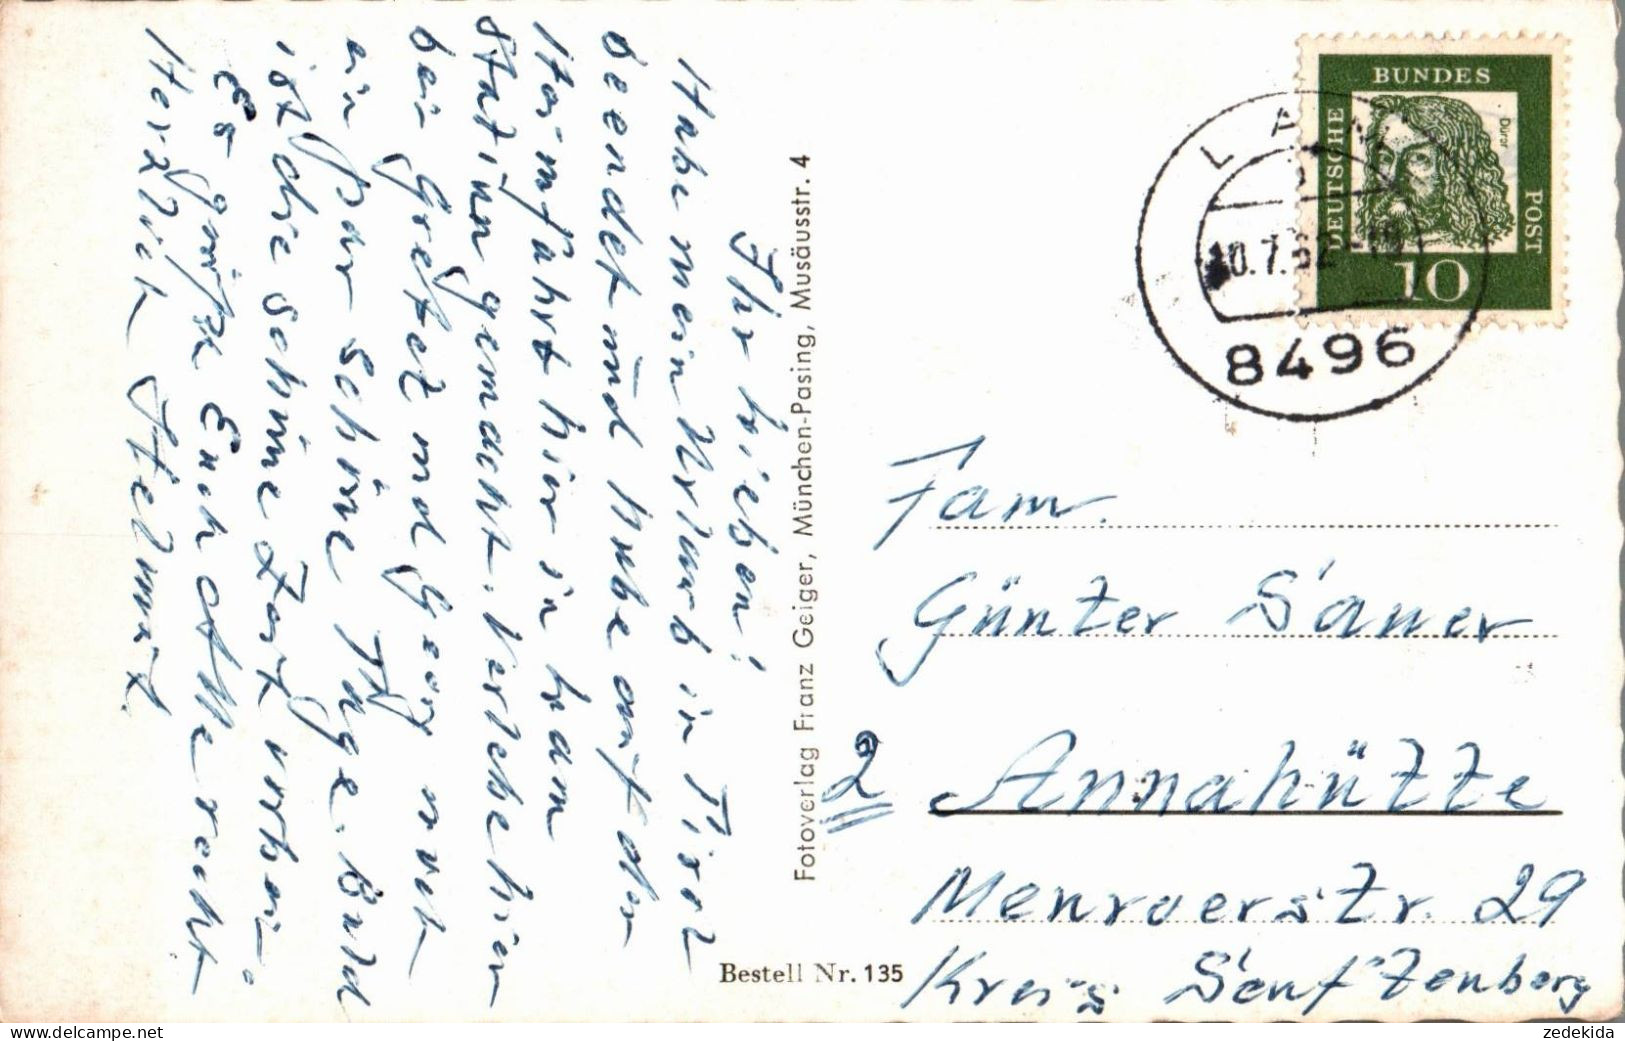 Ihr Lieben!
Habe mein Urlaub in Tirol
beendet und habe auf der
Heimfahrt hier in Lam
Station gemacht. Verlebe hier
bei Gretel und Georg noch
ein paar schöne Tage. Bald
ist die schöne Zeit vorbei.
Es grüßt Euch Alle recht
Herzlich Helmut
Fotoverlag Franz Geiger, München-Pasing, Musäusstr. 4
Bestell Nr. 135
DEUTSCHE BUNDES POST
Dürer
10
LAM
10.7.62
8496
Fam.
Günter Sauer
2 Annahütte
Menroerstr. 29
Kreis Senftenberg
zedekida